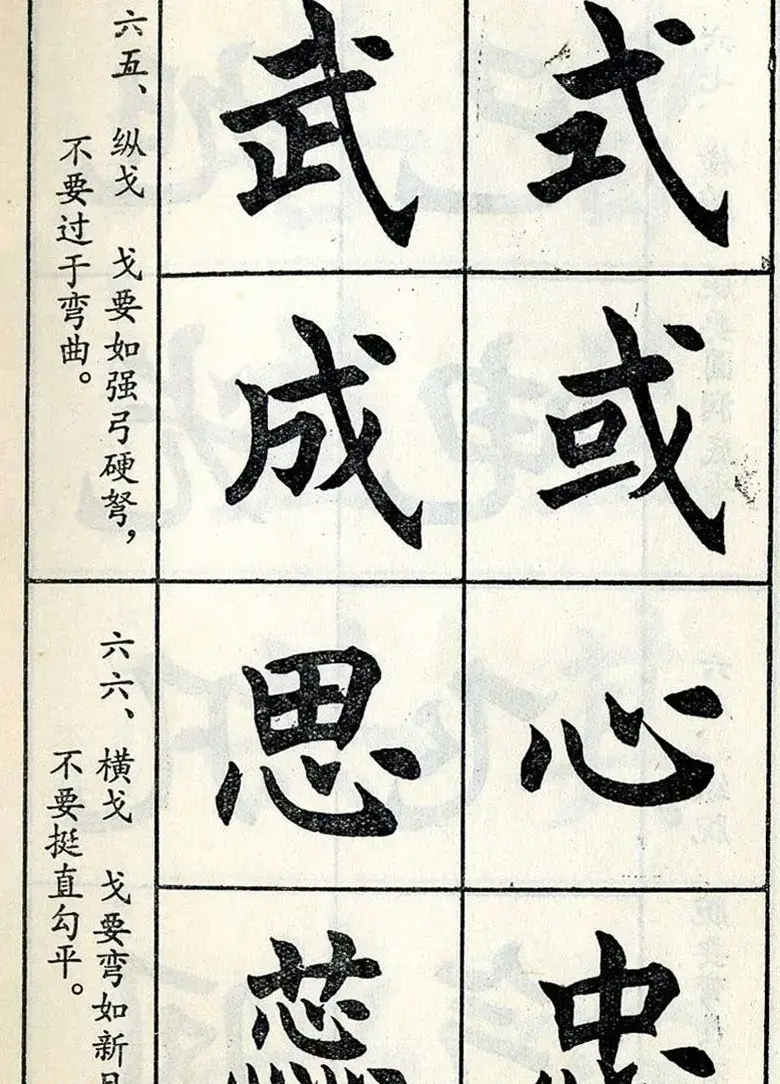 式
武
或
成
六五、纵戈 戈要如强弓硬弩，
不要过于弯曲。
心
思
忠
六六、横戈 戈要弯如新
不要挺直勾平。